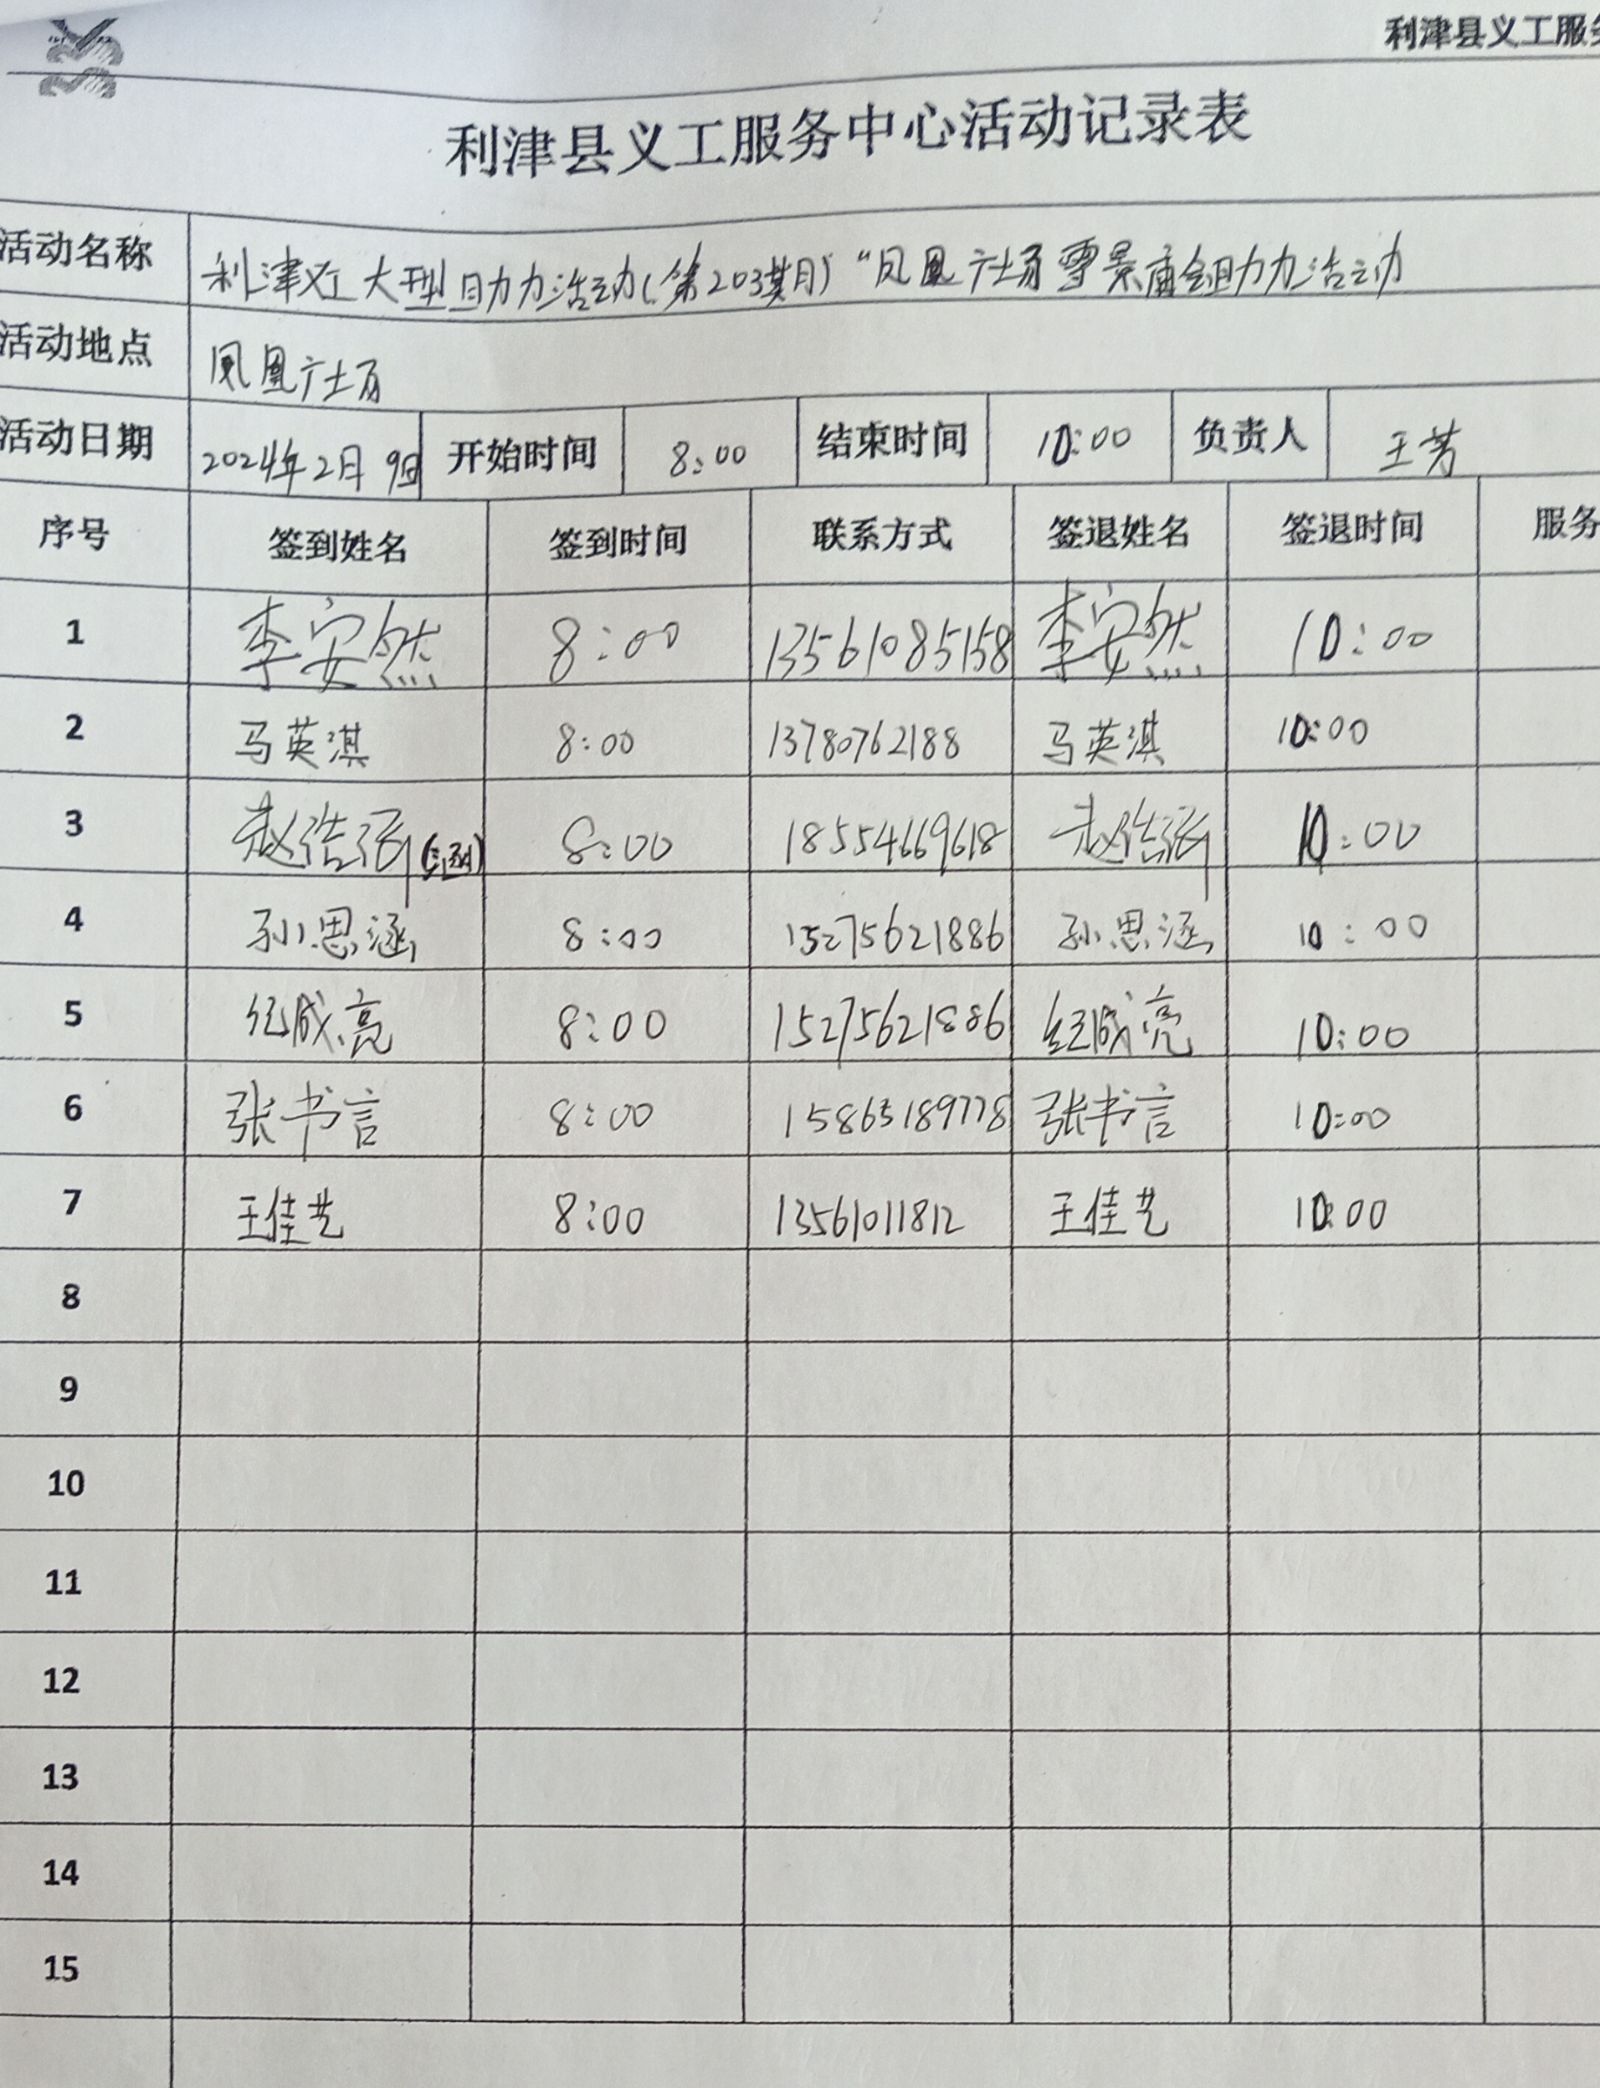 利津县义工服务
利津县义工服务中心活动记录表
活动名称 利津义工大型助力活动(第203期)“凤凰广场雪景庙会助力活动
活动地点 凤凰广场
活动日期 2024年2月9日 开始时间 8:00 结束时间 10:00 负责人 王芳
序号 签到姓名 签到时间 联系方式 签退姓名 签退时间 服务
1 李安然 8:00 13561085158 李安然 10:00
2 马英淇 8:00 13780762188 马英淇 10:00
3 赵浩涵(涵) 8:00 18554669618 赵浩涵 10:00
4 孙思涵 8:00 15275621886 孙思涵 10:00
5 纪成亮 8:00 15275621886 纪成亮 10:00
6 张书言 8:00 15863189778 张书言 10:00
7 王佳艺 8:00 13561011812 王佳艺 10:00
8
9
10
11
12
13
14
15